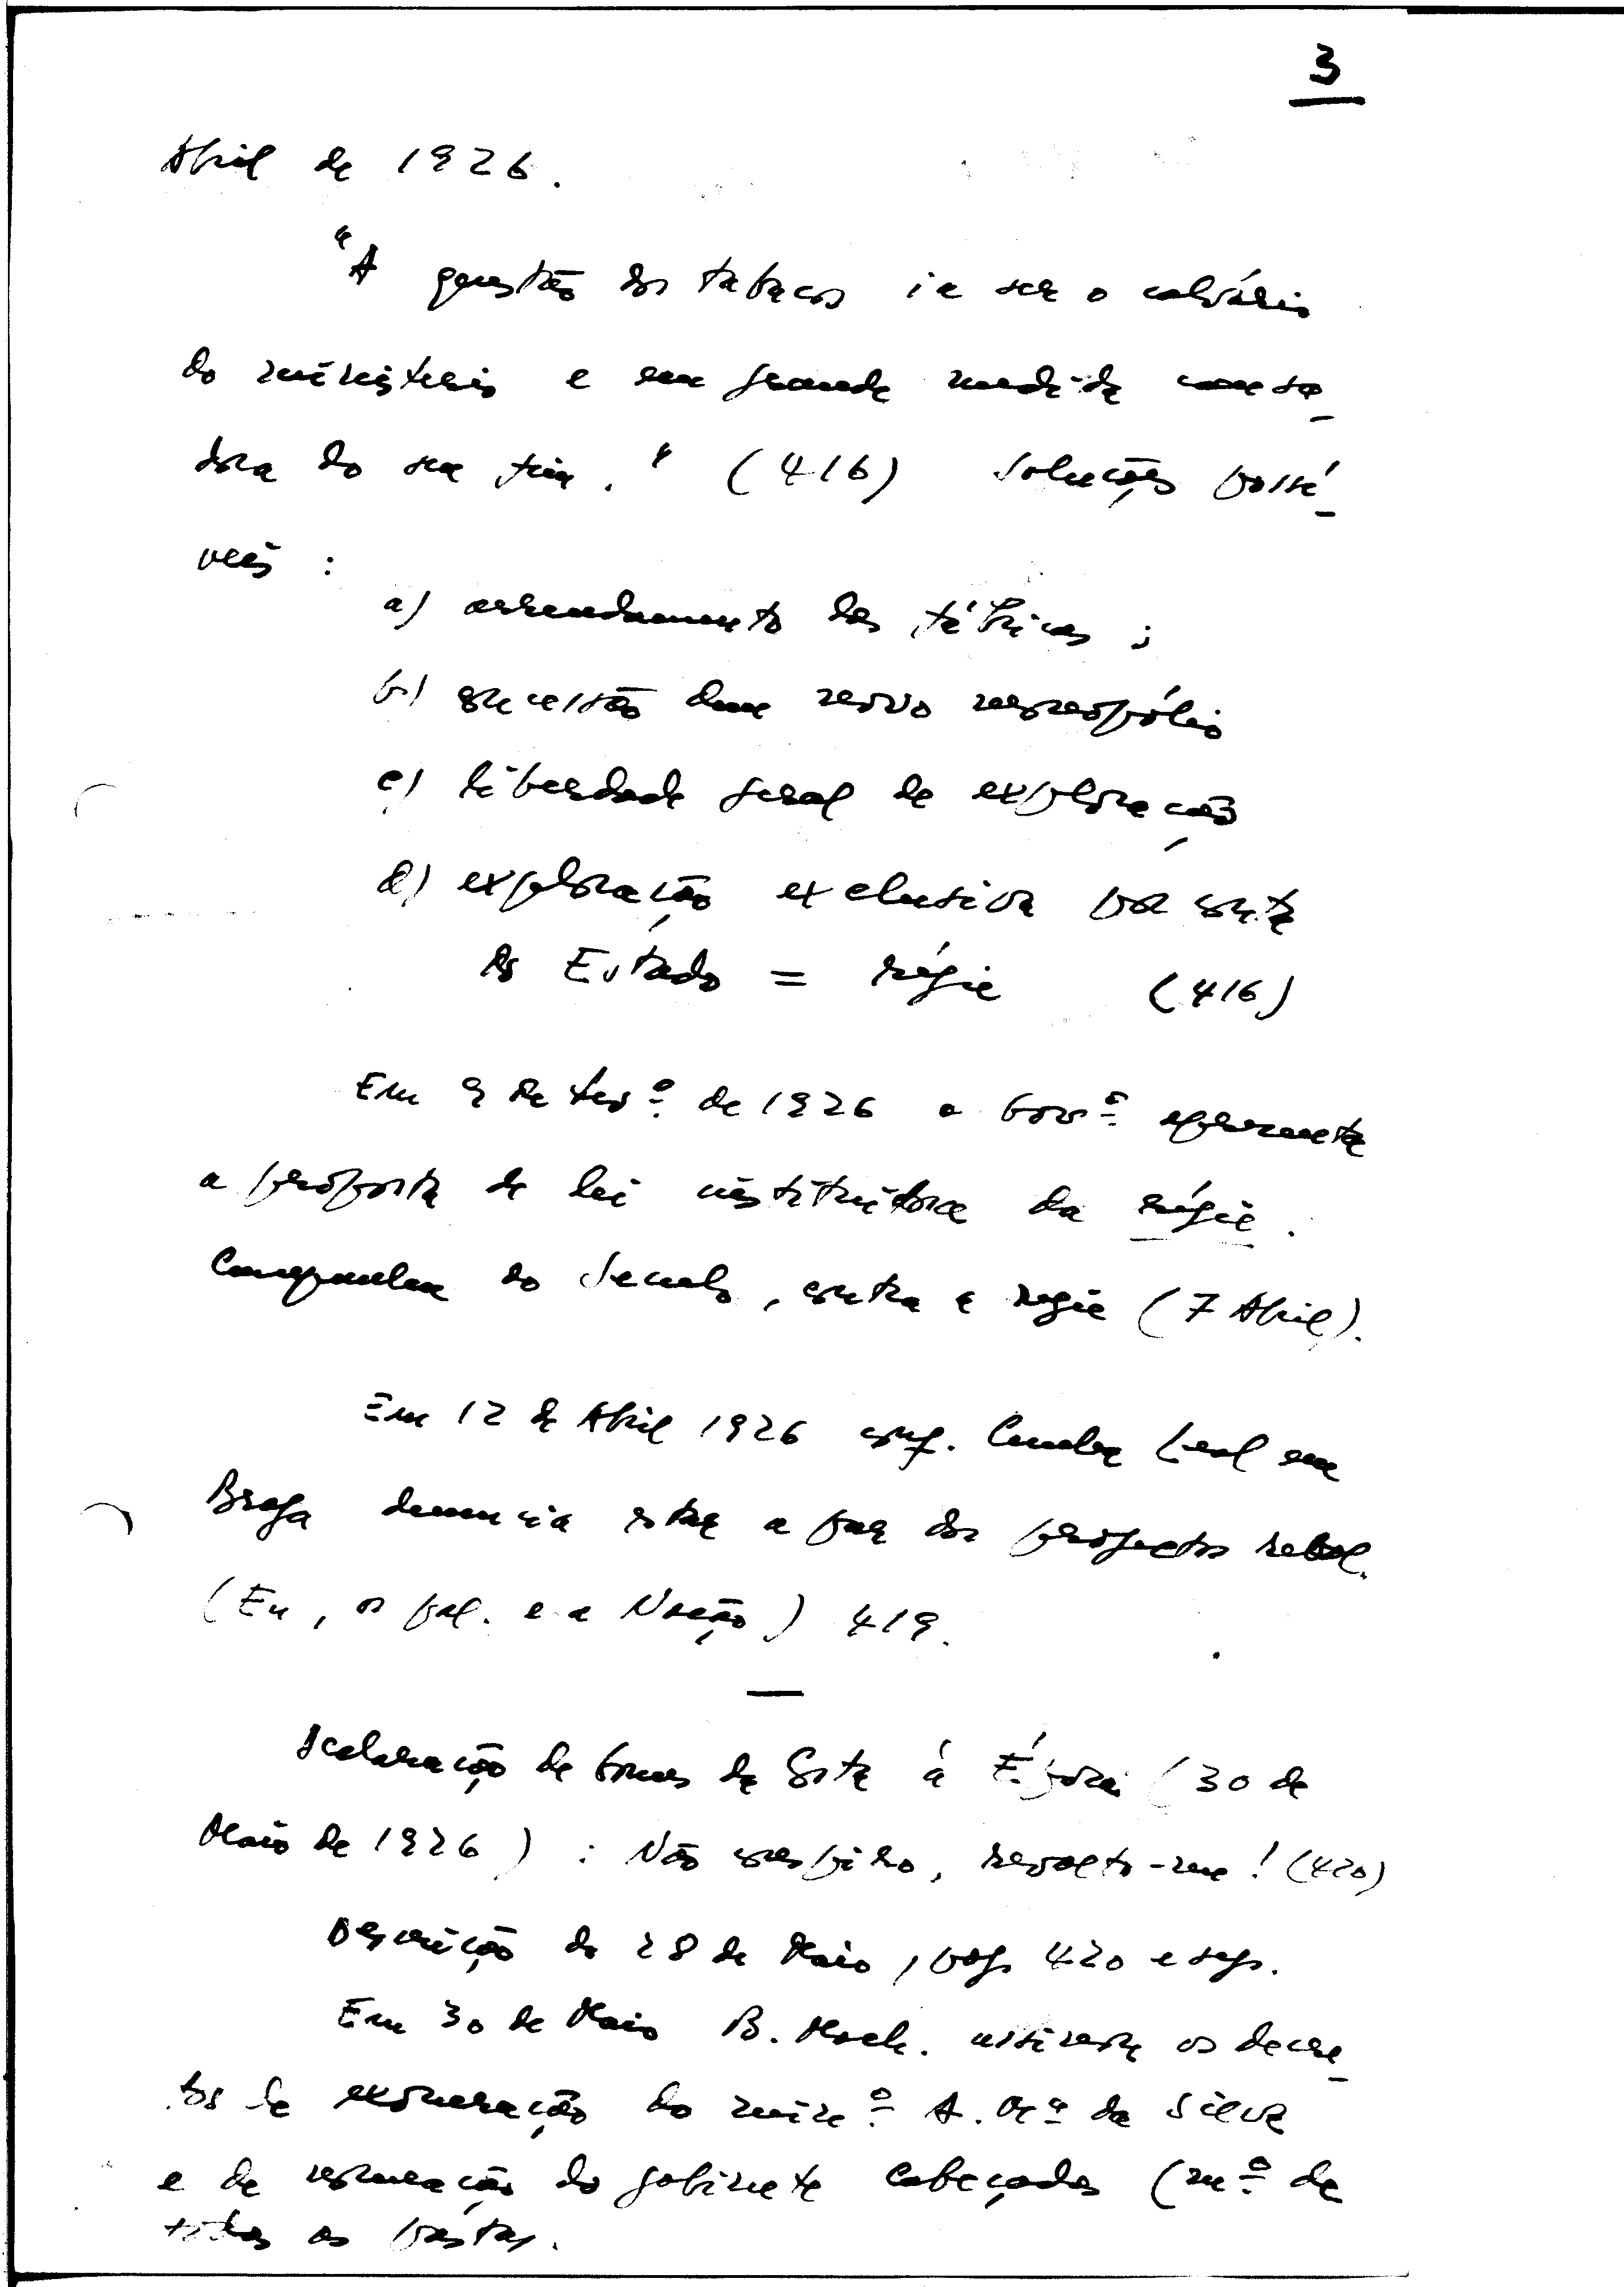 3
Abril de 1926.
"A questão dos tabacos ia ser o calvário
do ministério e em grande medida causa-
dora do seu fim." (416) Soluções possí-
veis :
a) arrendamento das fábricas ;
b) concessão dum novo monopólio
c) liberdade geral de exploração
d) exploração exclusiva por conta
do Estado = régie (416)
Em 9 de fev.º de 1926 o Gov.º apresenta
a proposta de lei instituidora da régie.
Campanha do Seculo, contra a regie (7 Abril).
Em 12 de Abril 1926 conf. Cunha Leal em
Braga denuncia a dos projectos
(Eu, os pol. e a Nação) 419.
Declaração de Gomes da Costa à Época (30 de
Maio de 1926) : Não conspiro, revolto-me! (420)
Descrição do 28 de Maio, pags 420 e segs.
Em 30 de Maio B. Mach. assinava os decre-
tos de exoneração do min.º A. M.ª da Silva
e de nomeação do gabinete Cabeçadas (m.º de
todas as pastas.